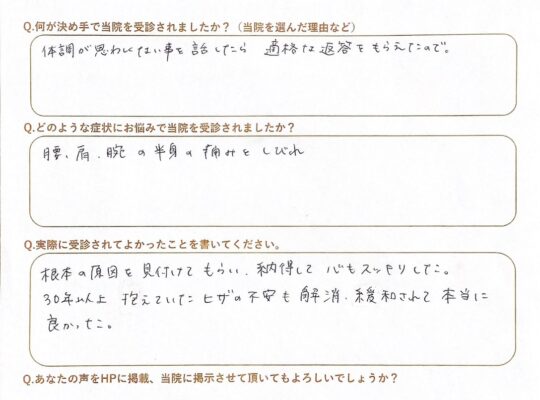 Q.何が決め手で当院を受診されましたか？（当院を選んだ理由など）
体調が思わしくない事を話したら 適格な返答をもらえたので。
Q.どのような症状にお悩みで当院を受診されましたか？
腰、肩、腕の半身の痛みとしびれ
Q.実際に受診されてよかったことを書いてください。
根本の原因を見付けてもらい、納得して心もスッキリした。
30年以上 抱えていたヒザの不安も解消、緩和されて本当に
良かった。
Q.あなたの声をHPに掲載、当院に掲示させて頂いてもよろしいでしょうか？